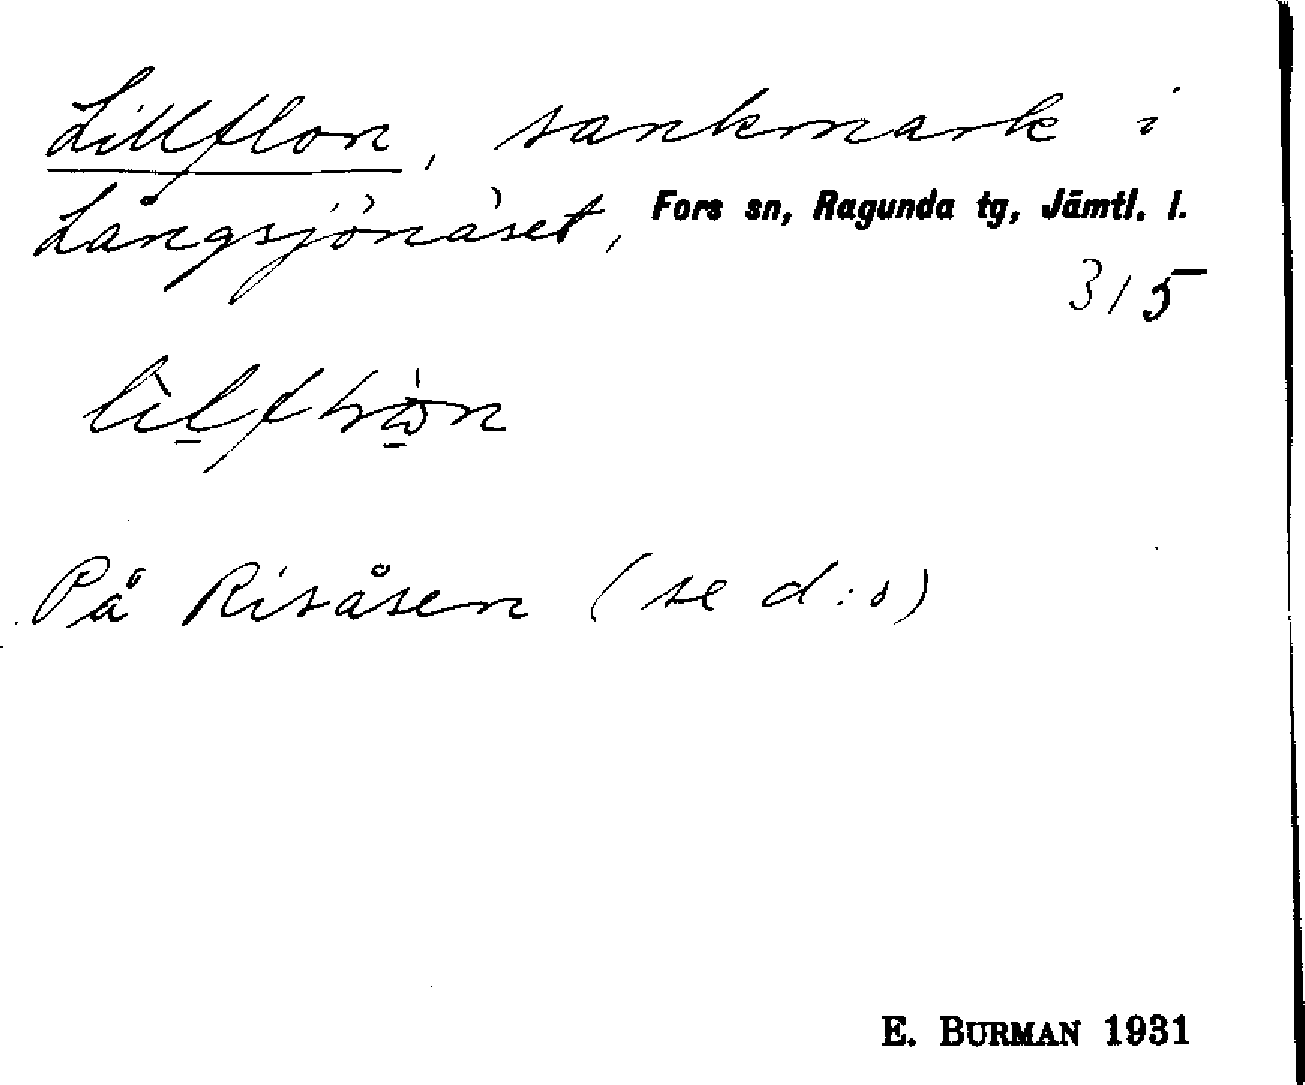 Lillflon, sankmark i
Långsjönäset, Fors sn, Ragunda tg, Jämtl. l.
315
På Risåsen (se d:o)
E. BURMAN 1931